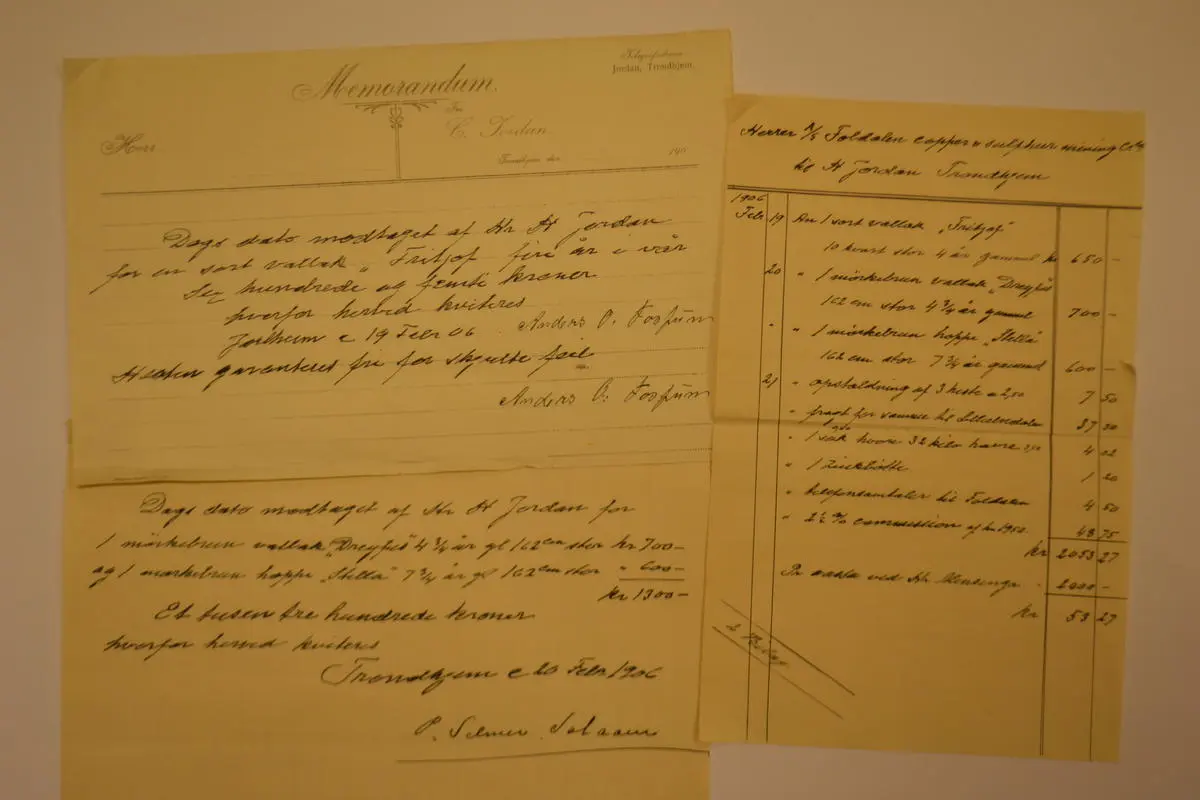 Memorandum.
Fra
C. Jordan.
Jordan, Trondhjem.
Herr
Trondhjem den 190
Dags dato modtaget af Hr H Jordan
for en sort vallak „Fritjof fire år i vår
Sex hundrede og femti kroner
hvorfor herved kviteres
19 Febr 06 Anders O.
Hesten garanteret fri for skjulte feil
Anders O.
Dags dato modtaget af Hr H Jordan for
1 mörkebrun vallak „Dreyfus" 4 3/4 år gl 162 cm stor kr 700-
og 1 mörkebrun hoppe „Stella" 7 3/4 år gl 162 cm stor „ 600-
kr 1300-
Et tusen tre hundrede kroner
hvorfor herved kviteres
Trondhjem d 20 Febr 1906
P. Selmer
Herrer A/S Foldalen copper & sulphur mining Co
H Jordan Trondhjem
1906
Febr 19 An 1 sort vallak „Fritjof"
10 kvart stor 4 år gammel kr 650 -
20 „ 1 mörkebrun vallak „Dreyfus"
162 cm stor 4 3/4 år gammel 700 -
„ „ 1 mörkebrun hoppe „Stella"
162 cm stor 7 3/4 år gammel 600 -
21 „ opstaldning af 3 heste a 2,50 7 50
„ fragt for samme til Lilleelvedalen 37 30
„ 1 sæk havre 32 kilo havre 4 02
„ 1 zinkbötte 1 20
„ telefonsamtaler til Foldalen 4 50
„ 2½ % commission af kr 1950. 48 75
kr 2053 27
Pr ved Hr 2000 -
kr 53 27
2 Bilag